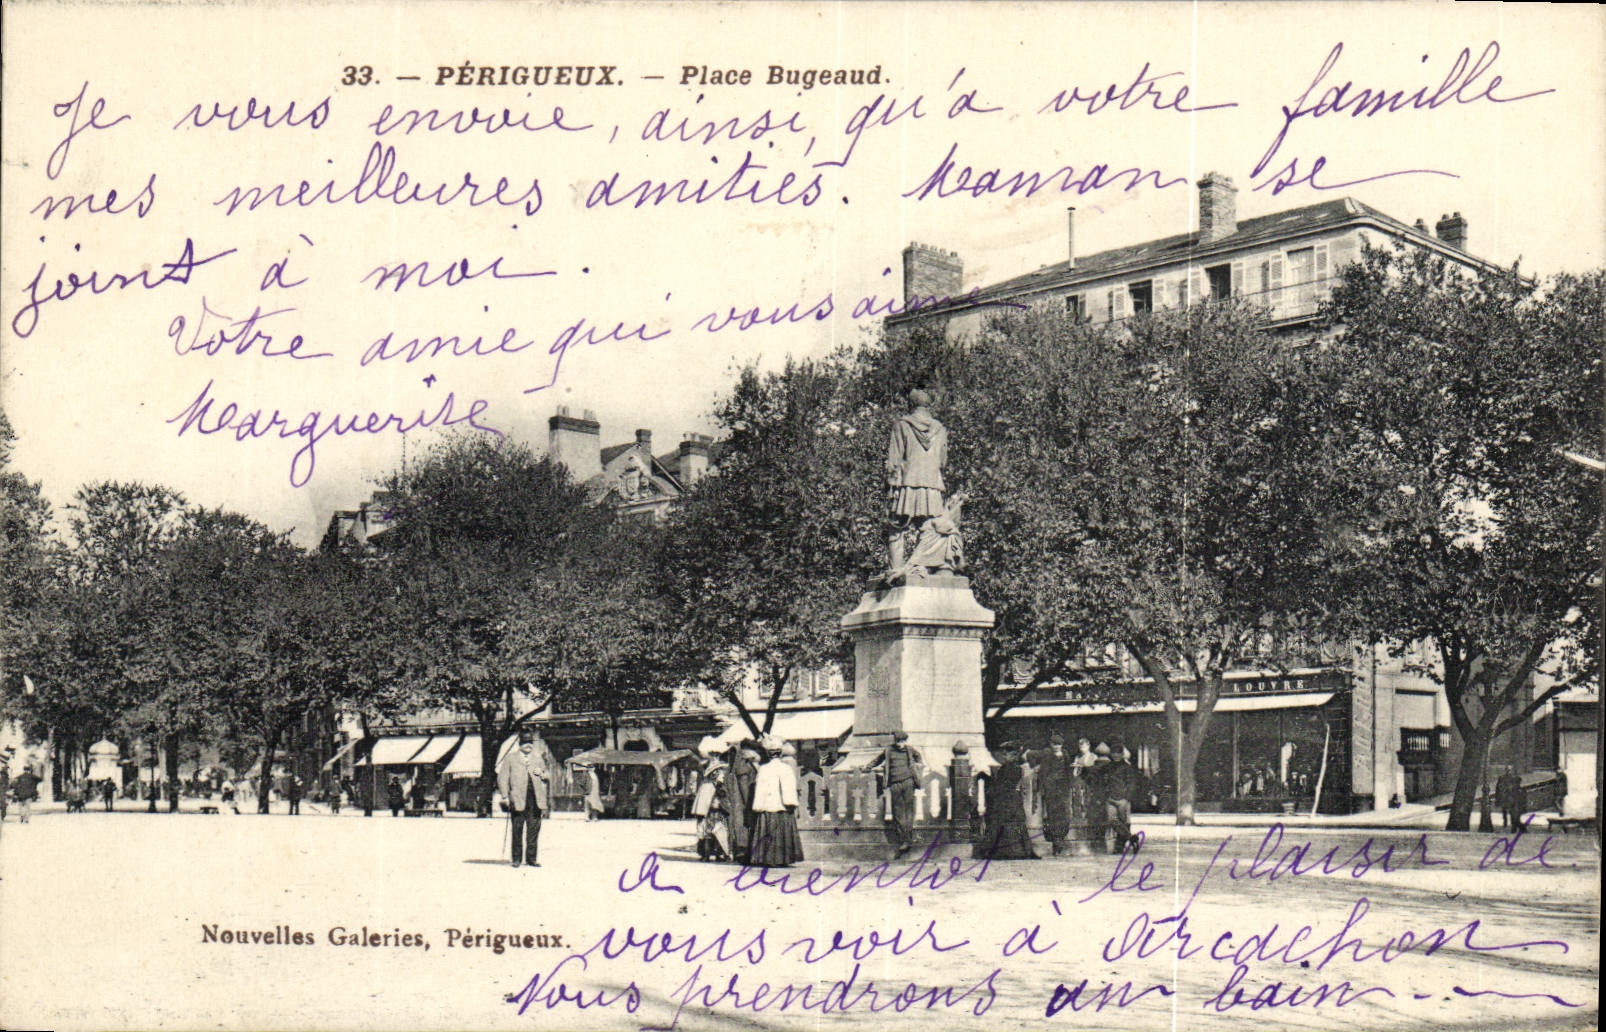 33. — PÉRIGUEUX. — Place Bugeaud.
Je vous envoie, ainsi, qu'a votre famille
mes meilleures amitiés. Maman se
joint à moi.
Votre amie qui vous aime
Marguerite
LOUVRE
a bientot le plaisir de
vous voir à Arcachon
Nouvelles Galeries, Périgueux.
Nous prendrons un bain...